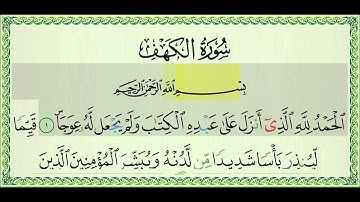 سُورَةُ الكَهْفِ
بِسْمِ اللَّهِ الرَّحْمَٰنِ الرَّحِيمِ
الْحَمْدُ لِلَّهِ الَّذِىٓ أَنزَلَ عَلَىٰ عَبْدِهِ الْكِتَٰبَ وَلَمْ يَجْعَل لَّهُ عِوَجَاۜ ١ قَيِّمًا
لِّيُنذِرَ بَأْسًا شَدِيدًا مِّن لَّدُنْهُ وَيُبَشِّرَ الْمُؤْمِنِينَ الَّذِينَ